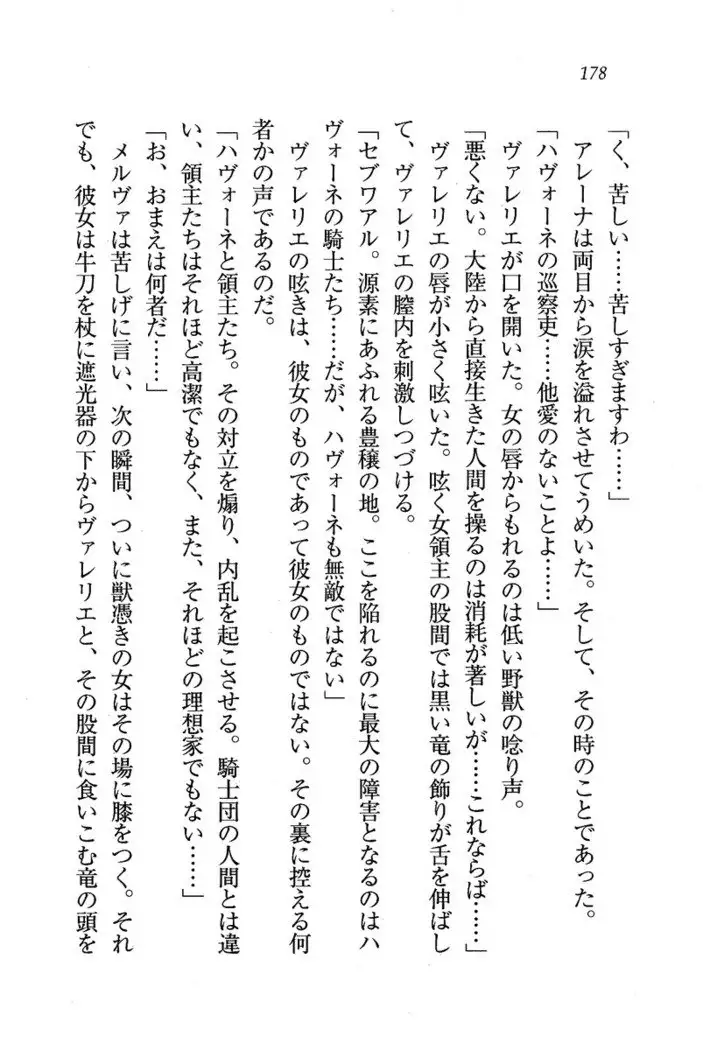 178
「く、苦しい……苦しすぎますわ……」
アレーナは両目から涙を溢れさせてうめいた。そして、その時のことであった。
「ハヴォーネの巡察吏……他愛のないことよ……」
ヴァレリエが口を開いた。女の唇からもれるのは低い野獣の唸り声。
「悪くない。大陸から直接生きた人間を操るのは消耗が著しいが……これならば……」
ヴァレリエの唇が小さく呟いた。呟く女領主の股間では黒い竜の飾りが舌を伸ばし
て、ヴァレリエの膣内を刺激しつづける。
「セブワアル。源素にあふれる豊穣の地。ここを陥れるのに最大の障害となるのはハ
ヴォーネの騎士たち……だが、ハヴォーネも無敵ではない」
ヴァレリエの呟きは、彼女のものであって彼女のものではない。その裏に控える何
者かの声であるのだ。
「ハヴォーネと領主たち。その対立を煽り、内乱を起こさせる。騎士団の人間とは違
い、領主たちはそれほど高潔でもなく、また、それほどの理想家でもない……」
「お、おまえは何者だ……」
メルヴァは苦しげに言い、次の瞬間、ついに獣憑きの女はその場に膝をつく。それ
でも、彼女は牛刀を杖に遮光器の下からヴァレリエと、その股間に食いこむ竜の頭を